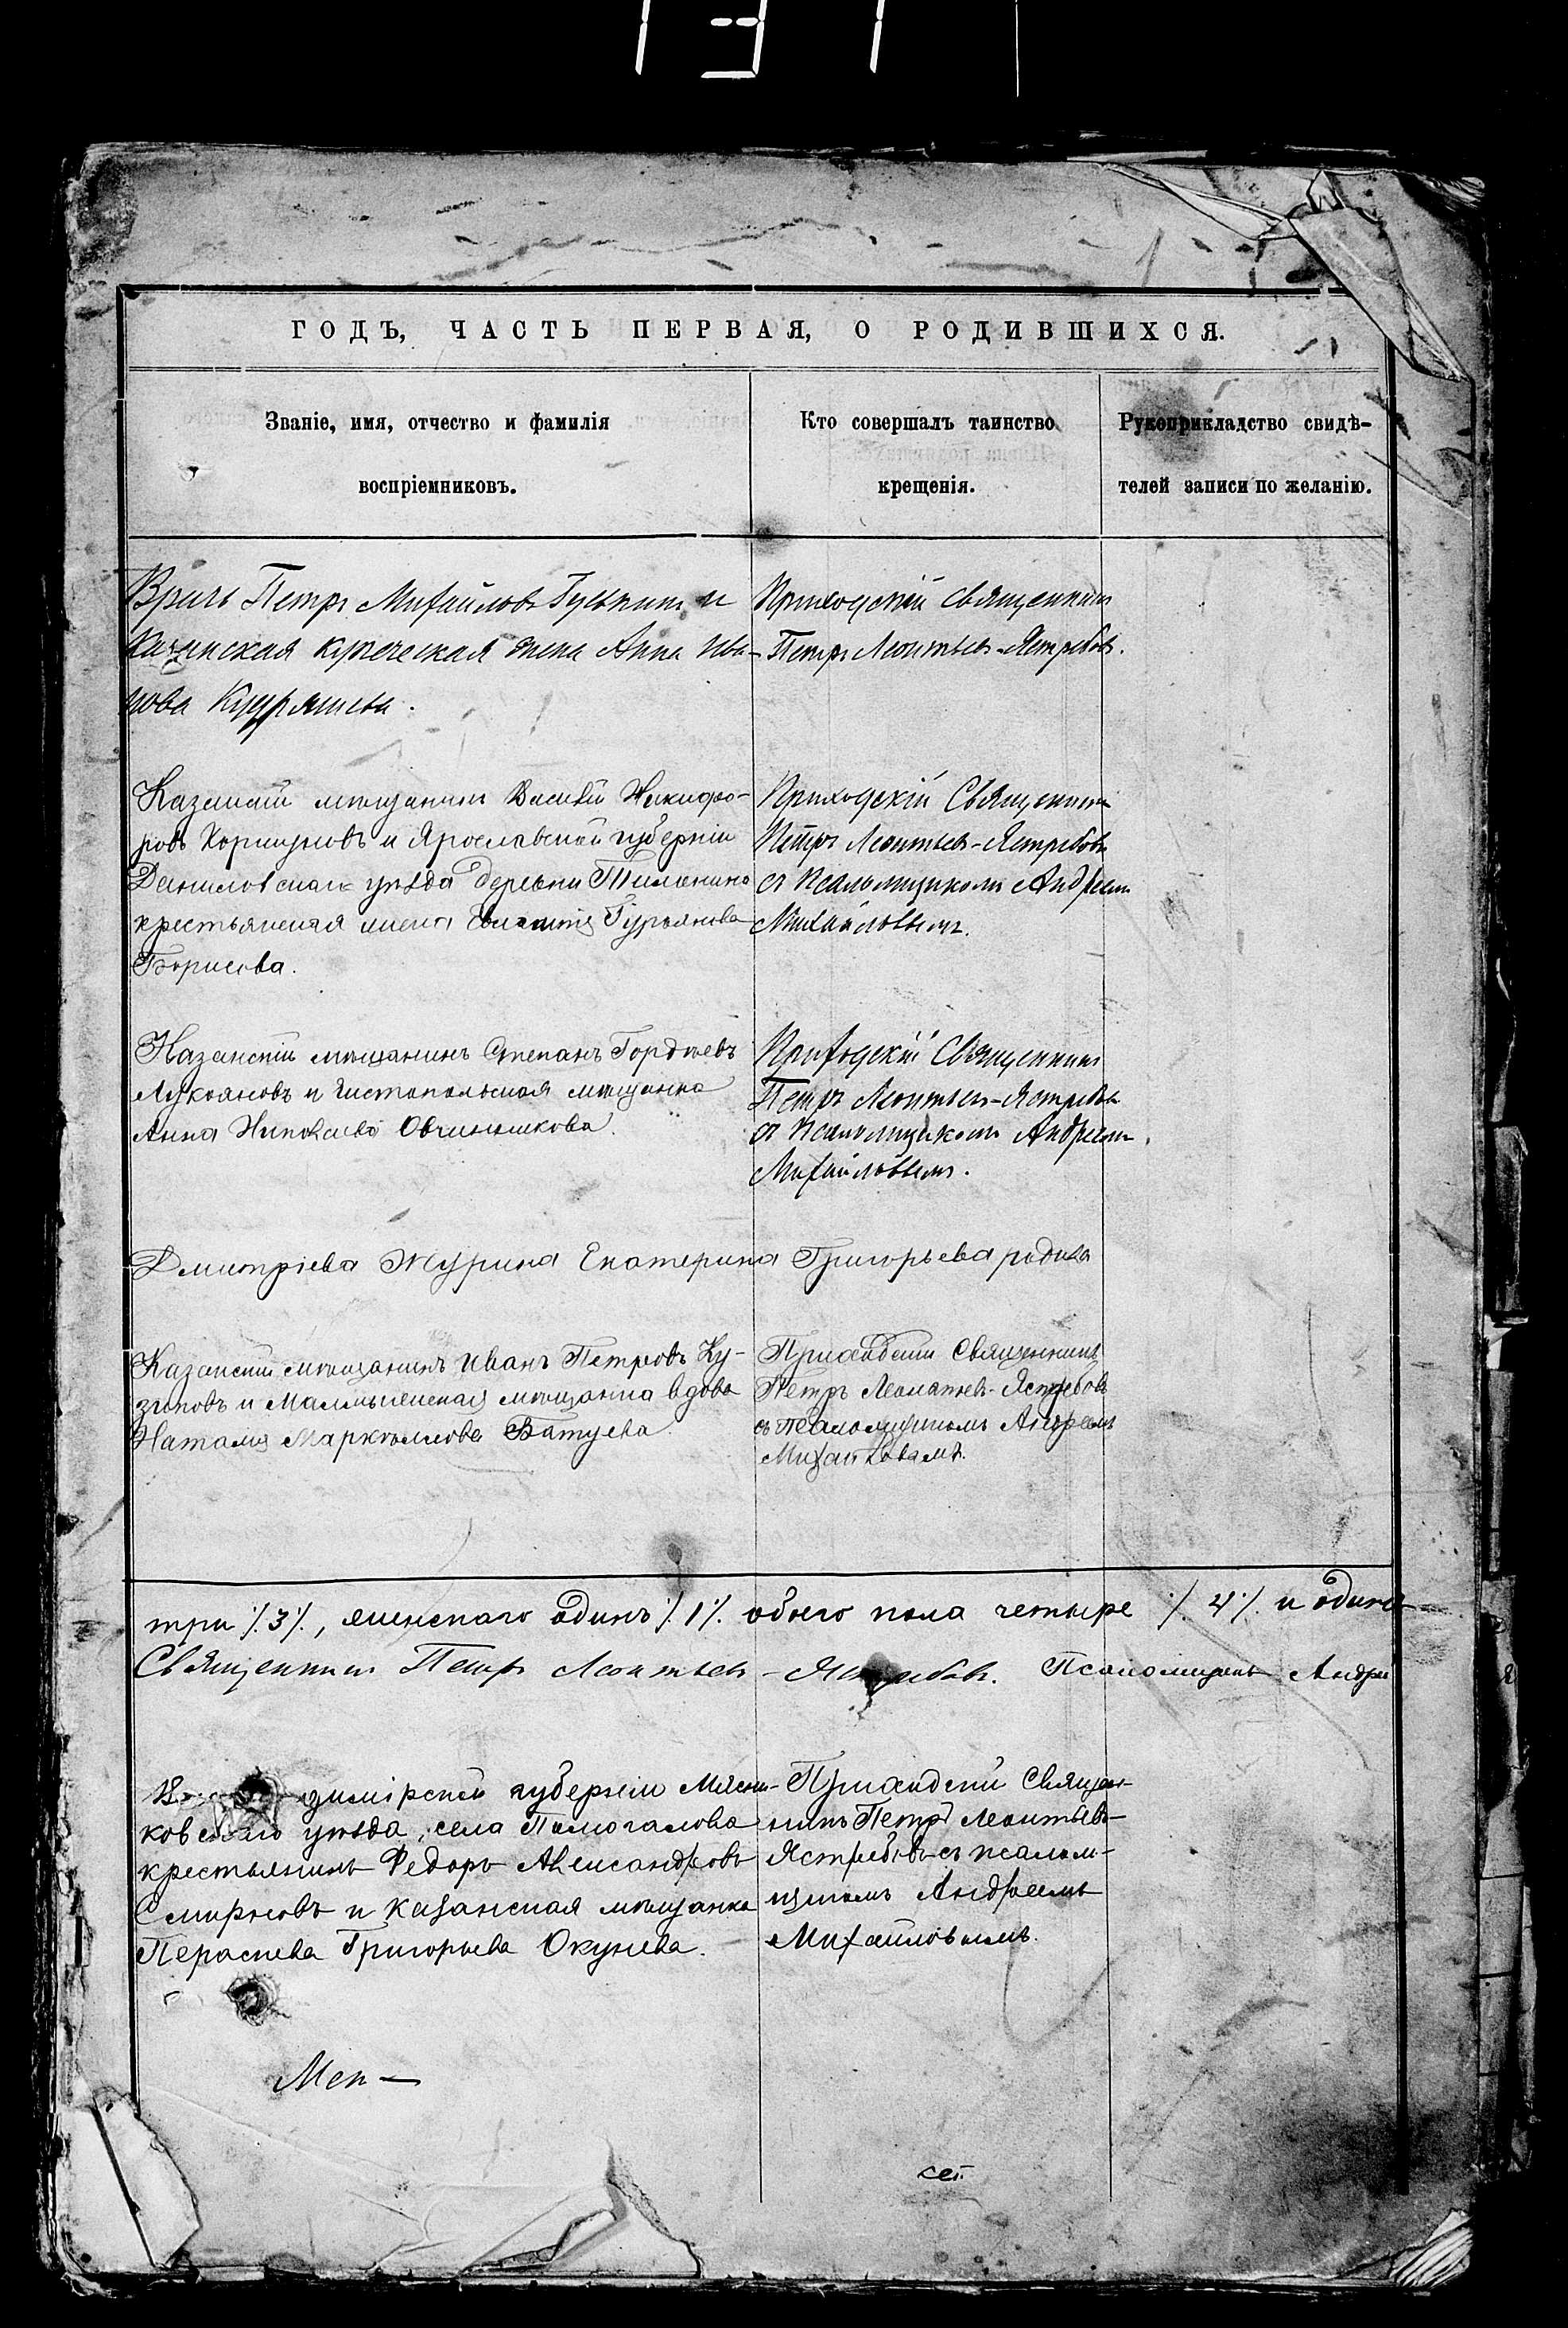 ГОДЪ, ЧАСТЬ ПЕРВАЯ, О РОДИВШИХСЯ.
Званіе, имя, отчество и фамилія
воспріемниковъ.
Кто совершалъ таинство
крещенія.
Рукоприкладство свидѣ-
телей записи по желанію.
Врачъ Петръ Михайловъ и
Казанская купеческая жена Анна Ива-
нова
Приходскій Священникъ
Петръ Леонтьев-Ястребовъ.
Казанскій мѣщанинъ Василій Никифо-
ровъ Коршуновъ и Ярославской губерніи
Даниловскаго уѣзда деревни
крестьянская жена Гурьянова
Борисова.
Приходскій Священникъ
Петръ Леонтьев-Ястребовъ
съ псаломщикомъ Андреемъ
Михайловымъ.
Казанскій мѣщанинъ Степанъ Гордѣевъ
Лукояновъ и Чистопольская мѣщанка
Анна Николаева Овчинникова.
Приходскій Священникъ
Петръ Леонтьев-Ястребовъ
съ псаломщикомъ Андреемъ
Михайловымъ.
Дмитріева Журина Екатерина Григорьева родила
Казанскій мѣщанинъ Иванъ Петровъ Ку-
зновъ и Малмыжская мѣщанка вдова
Наталія Маркелова Батуева.
Приходскій Священникъ
Петръ Леонтьев-Ястребовъ
съ псаломщикомъ Андреемъ
Михайловымъ.
три ٪3٪, женскаго одинъ ٪1٪. обоего пола четыре ٪4٪. и одинъ
Священникъ Петръ Леонтьев-Ястребовъ. Псаломщикъ Андрей
димірской губерніи
ковскаго уѣзда, села
крестьянинъ Федоръ Александровъ
Смирновъ и Казанская мѣщанка
Григорьева Окунева.
Приходскій Священ-
никъ Петръ Леонтьев-
Ястребовъ съ псалом-
щикомъ Андреемъ
Михайловымъ.